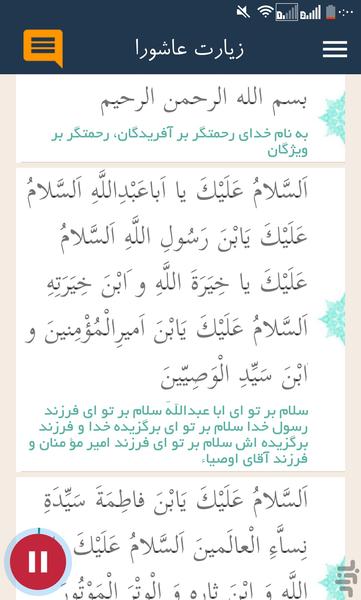 زیارت عاشورا
بسم الله الرحمن الرحیم
به نام خدای رحمتگر بر آفریدگان، رحمتگر بر
ویژگان
اَلسَّلامُ عَلَيْكَ يا اَباعَبْدِاللَّهِ اَلسَّلامُ
عَلَيْكَ يَابْنَ رَسُولِ اللَّهِ اَلسَّلامُ
عَلَيْكَ يا خِيَرَةَ اللَّهِ و َابْنَ خِيَرَتِهِ
اَلسَّلامُ عَلَيْكَ يَابْنَ اَميرِالْمُؤْمِنينَ و
َابْنَ سَيِّدِ الْوَصِيّينَ
سلام بر تو ای ابا عبداللّه سلام بر تو ای فرزند
رسول خدا سلام بر تو ای برگزیده خدا و فرزند
برگزیده اش سلام بر تو ای فرزند امیر مؤ منان و
فرزند آقای اوصیاء
اَلسَّلامُ عَلَيْكَ يَابْنَ فاطِمَةَ سَيِّدَةِ
نِساَّءِ الْعالَمينَ اَلسَّلامُ عَلَيْكَ
اللَّهِ و َابْنَ ثارِهِ وَ الْوِتْرَ الْمَوْتُورَ
بازار